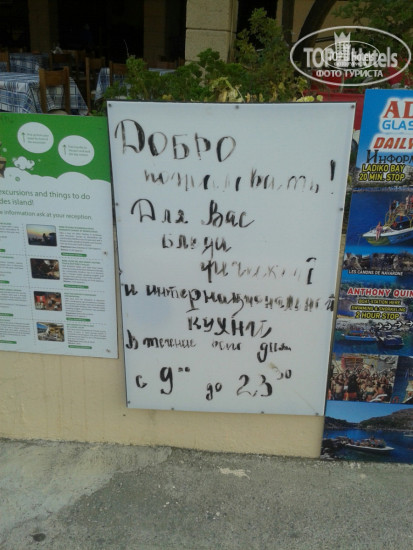 TOP Hotels
ФОТО ТУРИСТА
Добро
пожаловать!
Для Вас
блюда
греческой
и интернациональной
кухни
В течение всего дня
с 9 00 до 23 30
excursions and things to do
des island!
information ask at your reception.
AD
GLASS
DAILY
Информ
LADIKO BAY
20 MIN. STOP
LES CANONS DE NAVARONE
ANTHONY QUIN
SWIMMING & SNORKELING
2 HOUR STOP